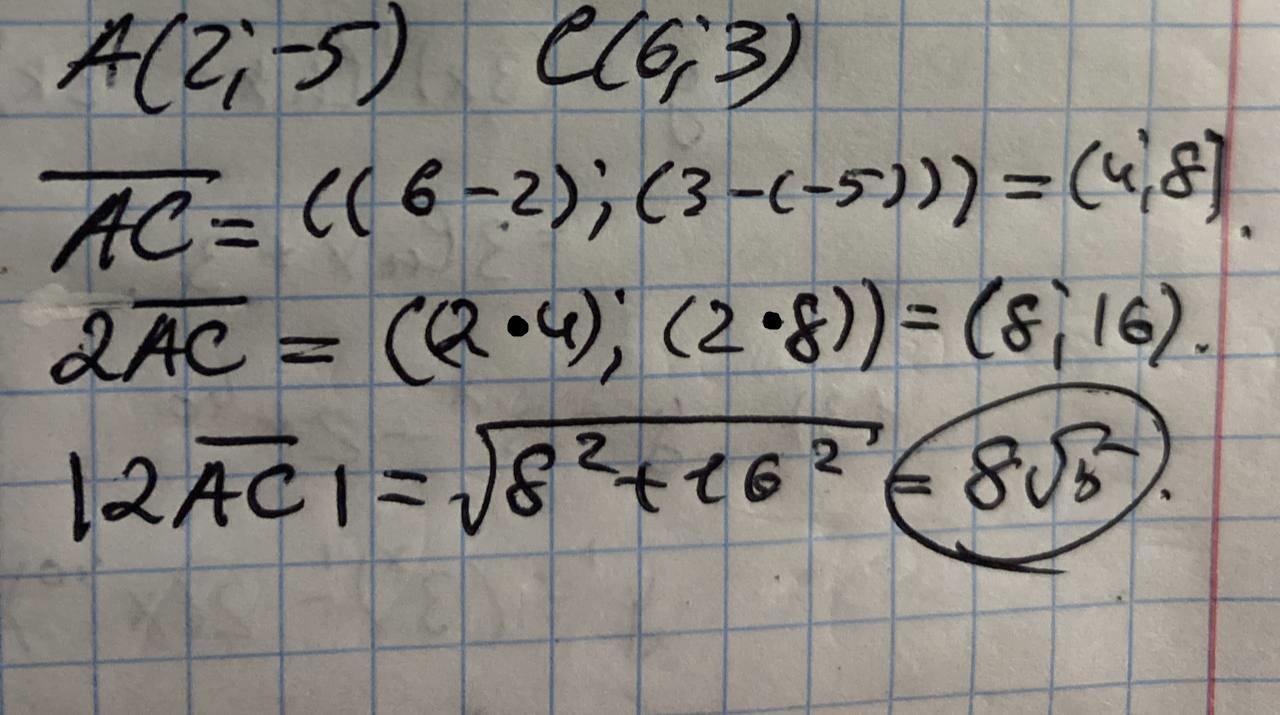 A(2; -5) C(6; 3)
AC = ((6-2); (3-(-5))) = (4; 8).
2AC = ((2•4); (2•8)) = (8; 16).
|2AC| = √8²+16² = 8√5.